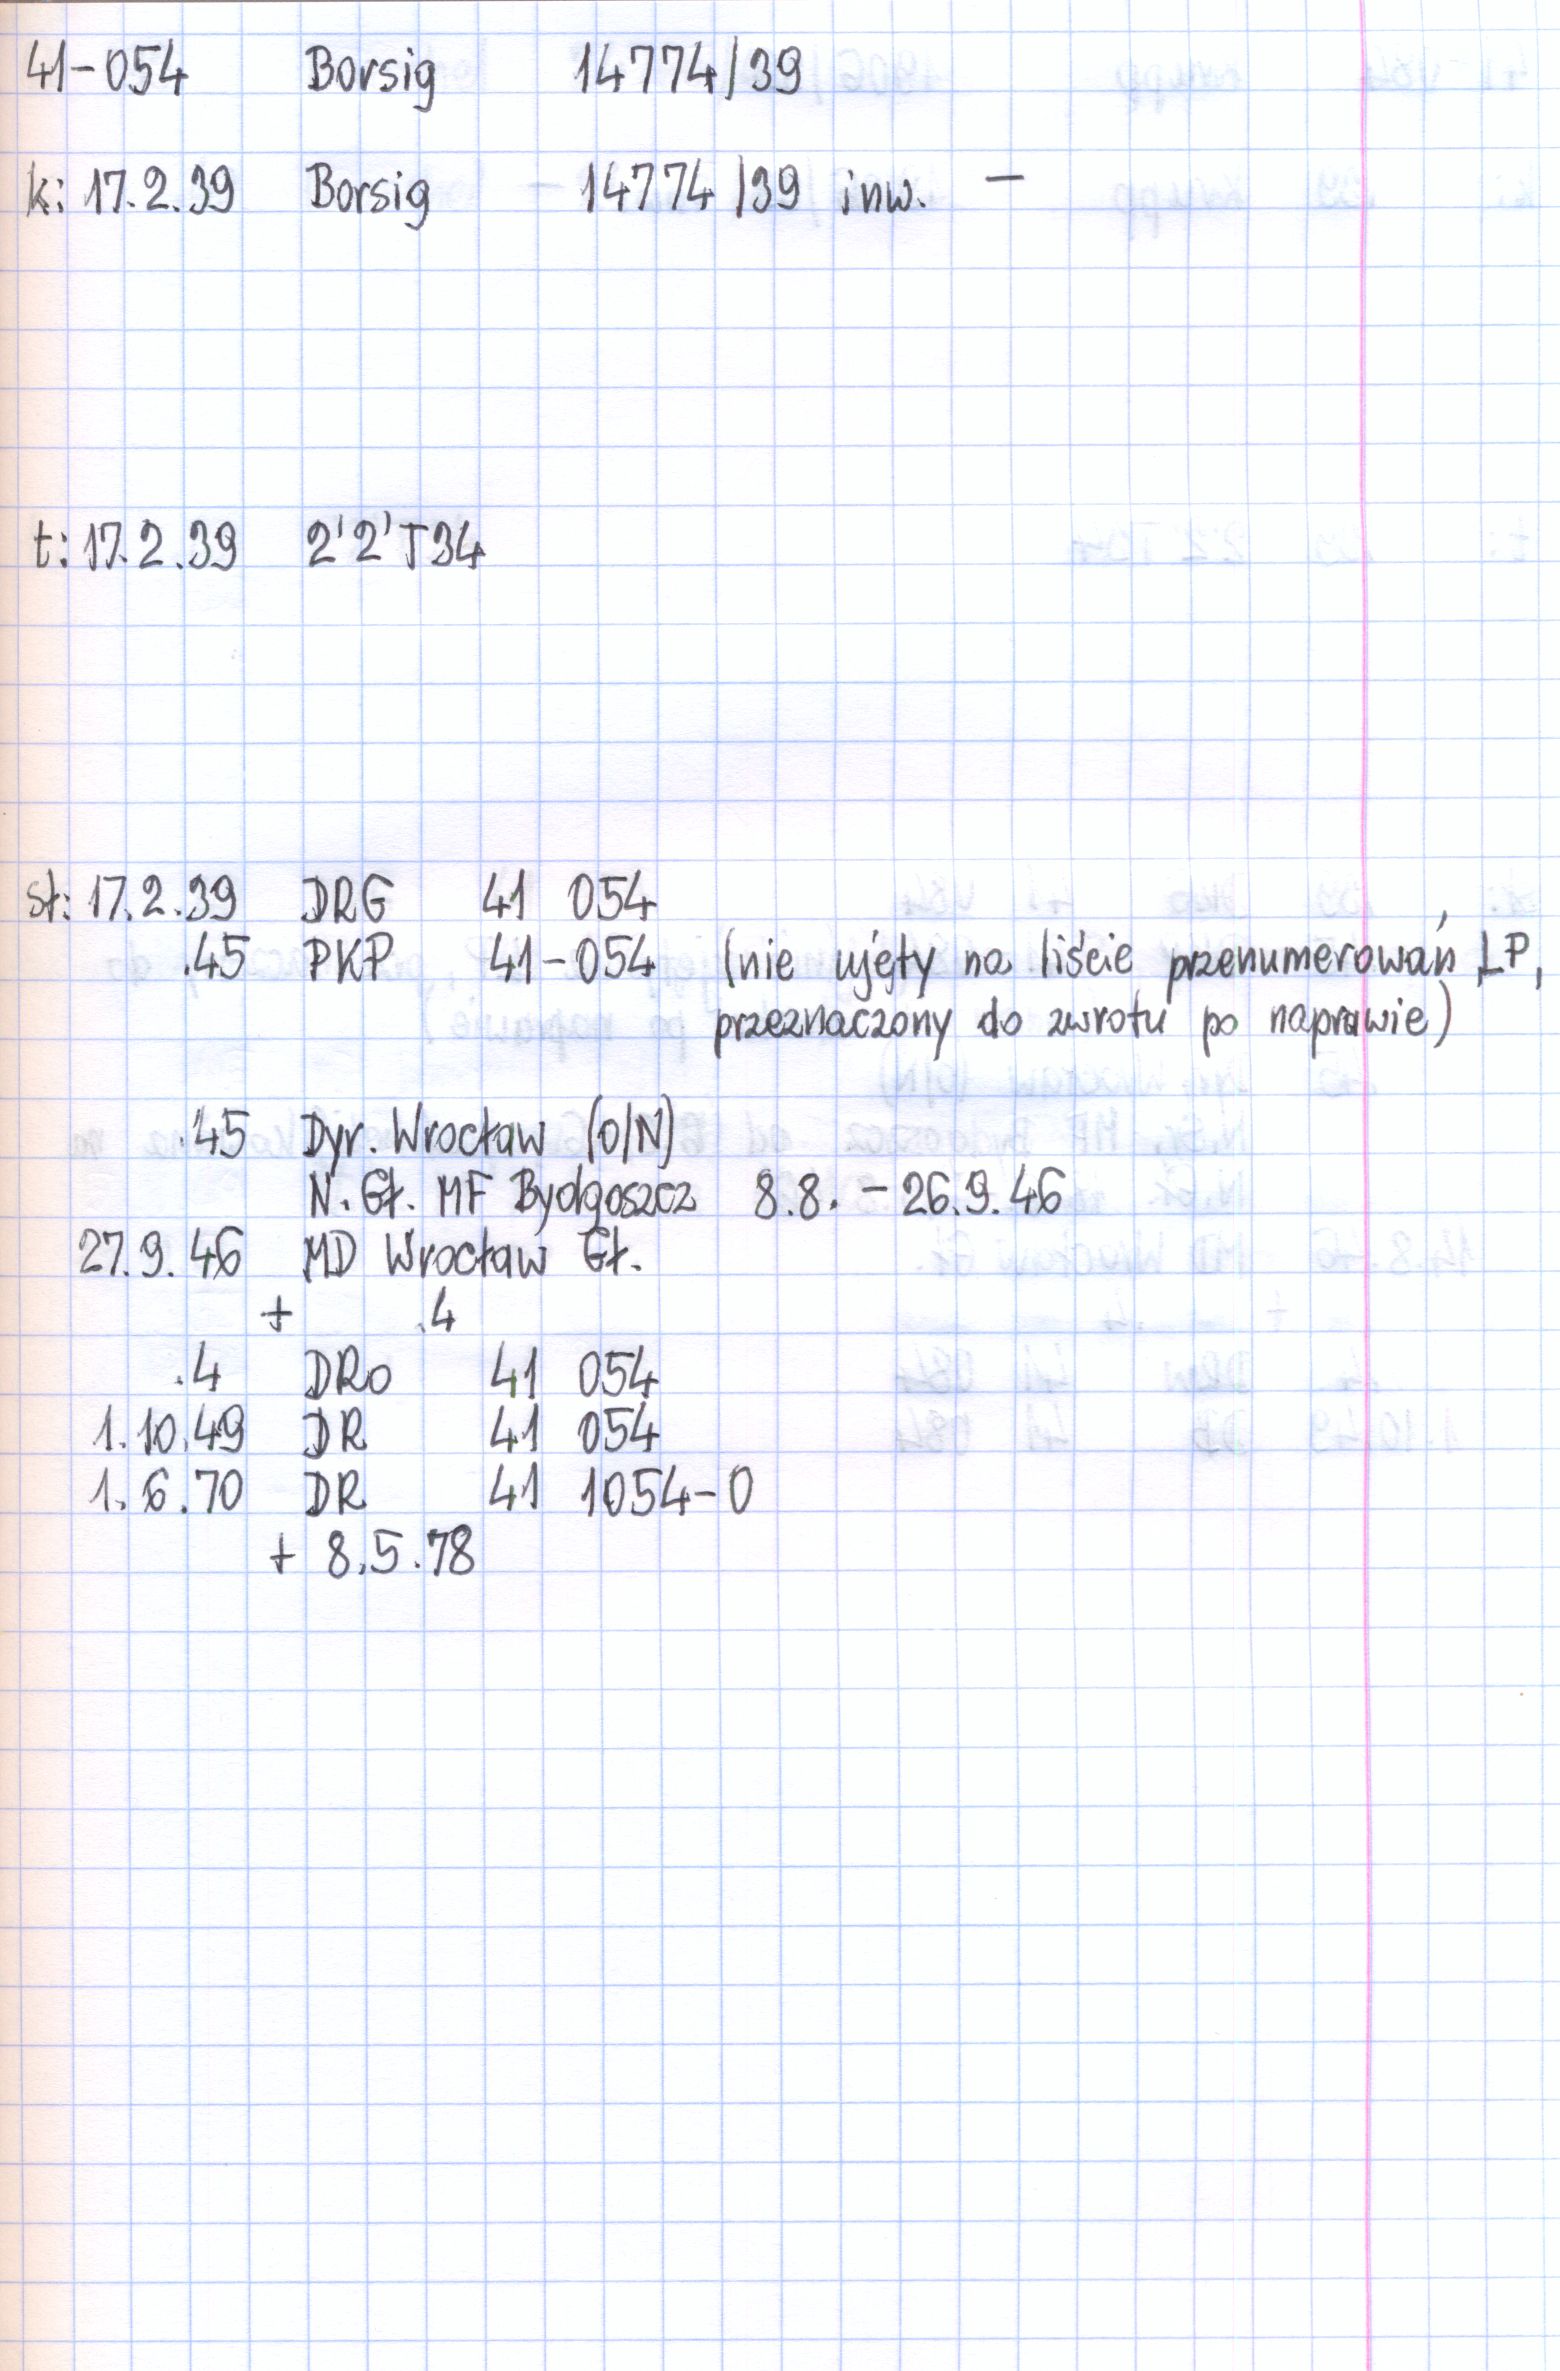 41-054 Borsig 14774/39
k: 17.2.39 Borsig 14774/39 inw. –
t: 17.2.39 2'2'T34
sł: 17.2.39 DRG 41 054
.45 PKP 41-054 (nie ujęty na liście przenumerowań LP,
przeznaczony do zwrotu po naprawie)
.45 Dyr. Wrocław (O/N)
N. Gł. MF Bydgoszcz 8.8. – 26.9.46
27.9.46 MD Wrocław Gł.
+ .4
.4 DRo 41 054
1.10.49 DR 41 054
1.6.70 DR 41 1054-0
+ 8.5.78